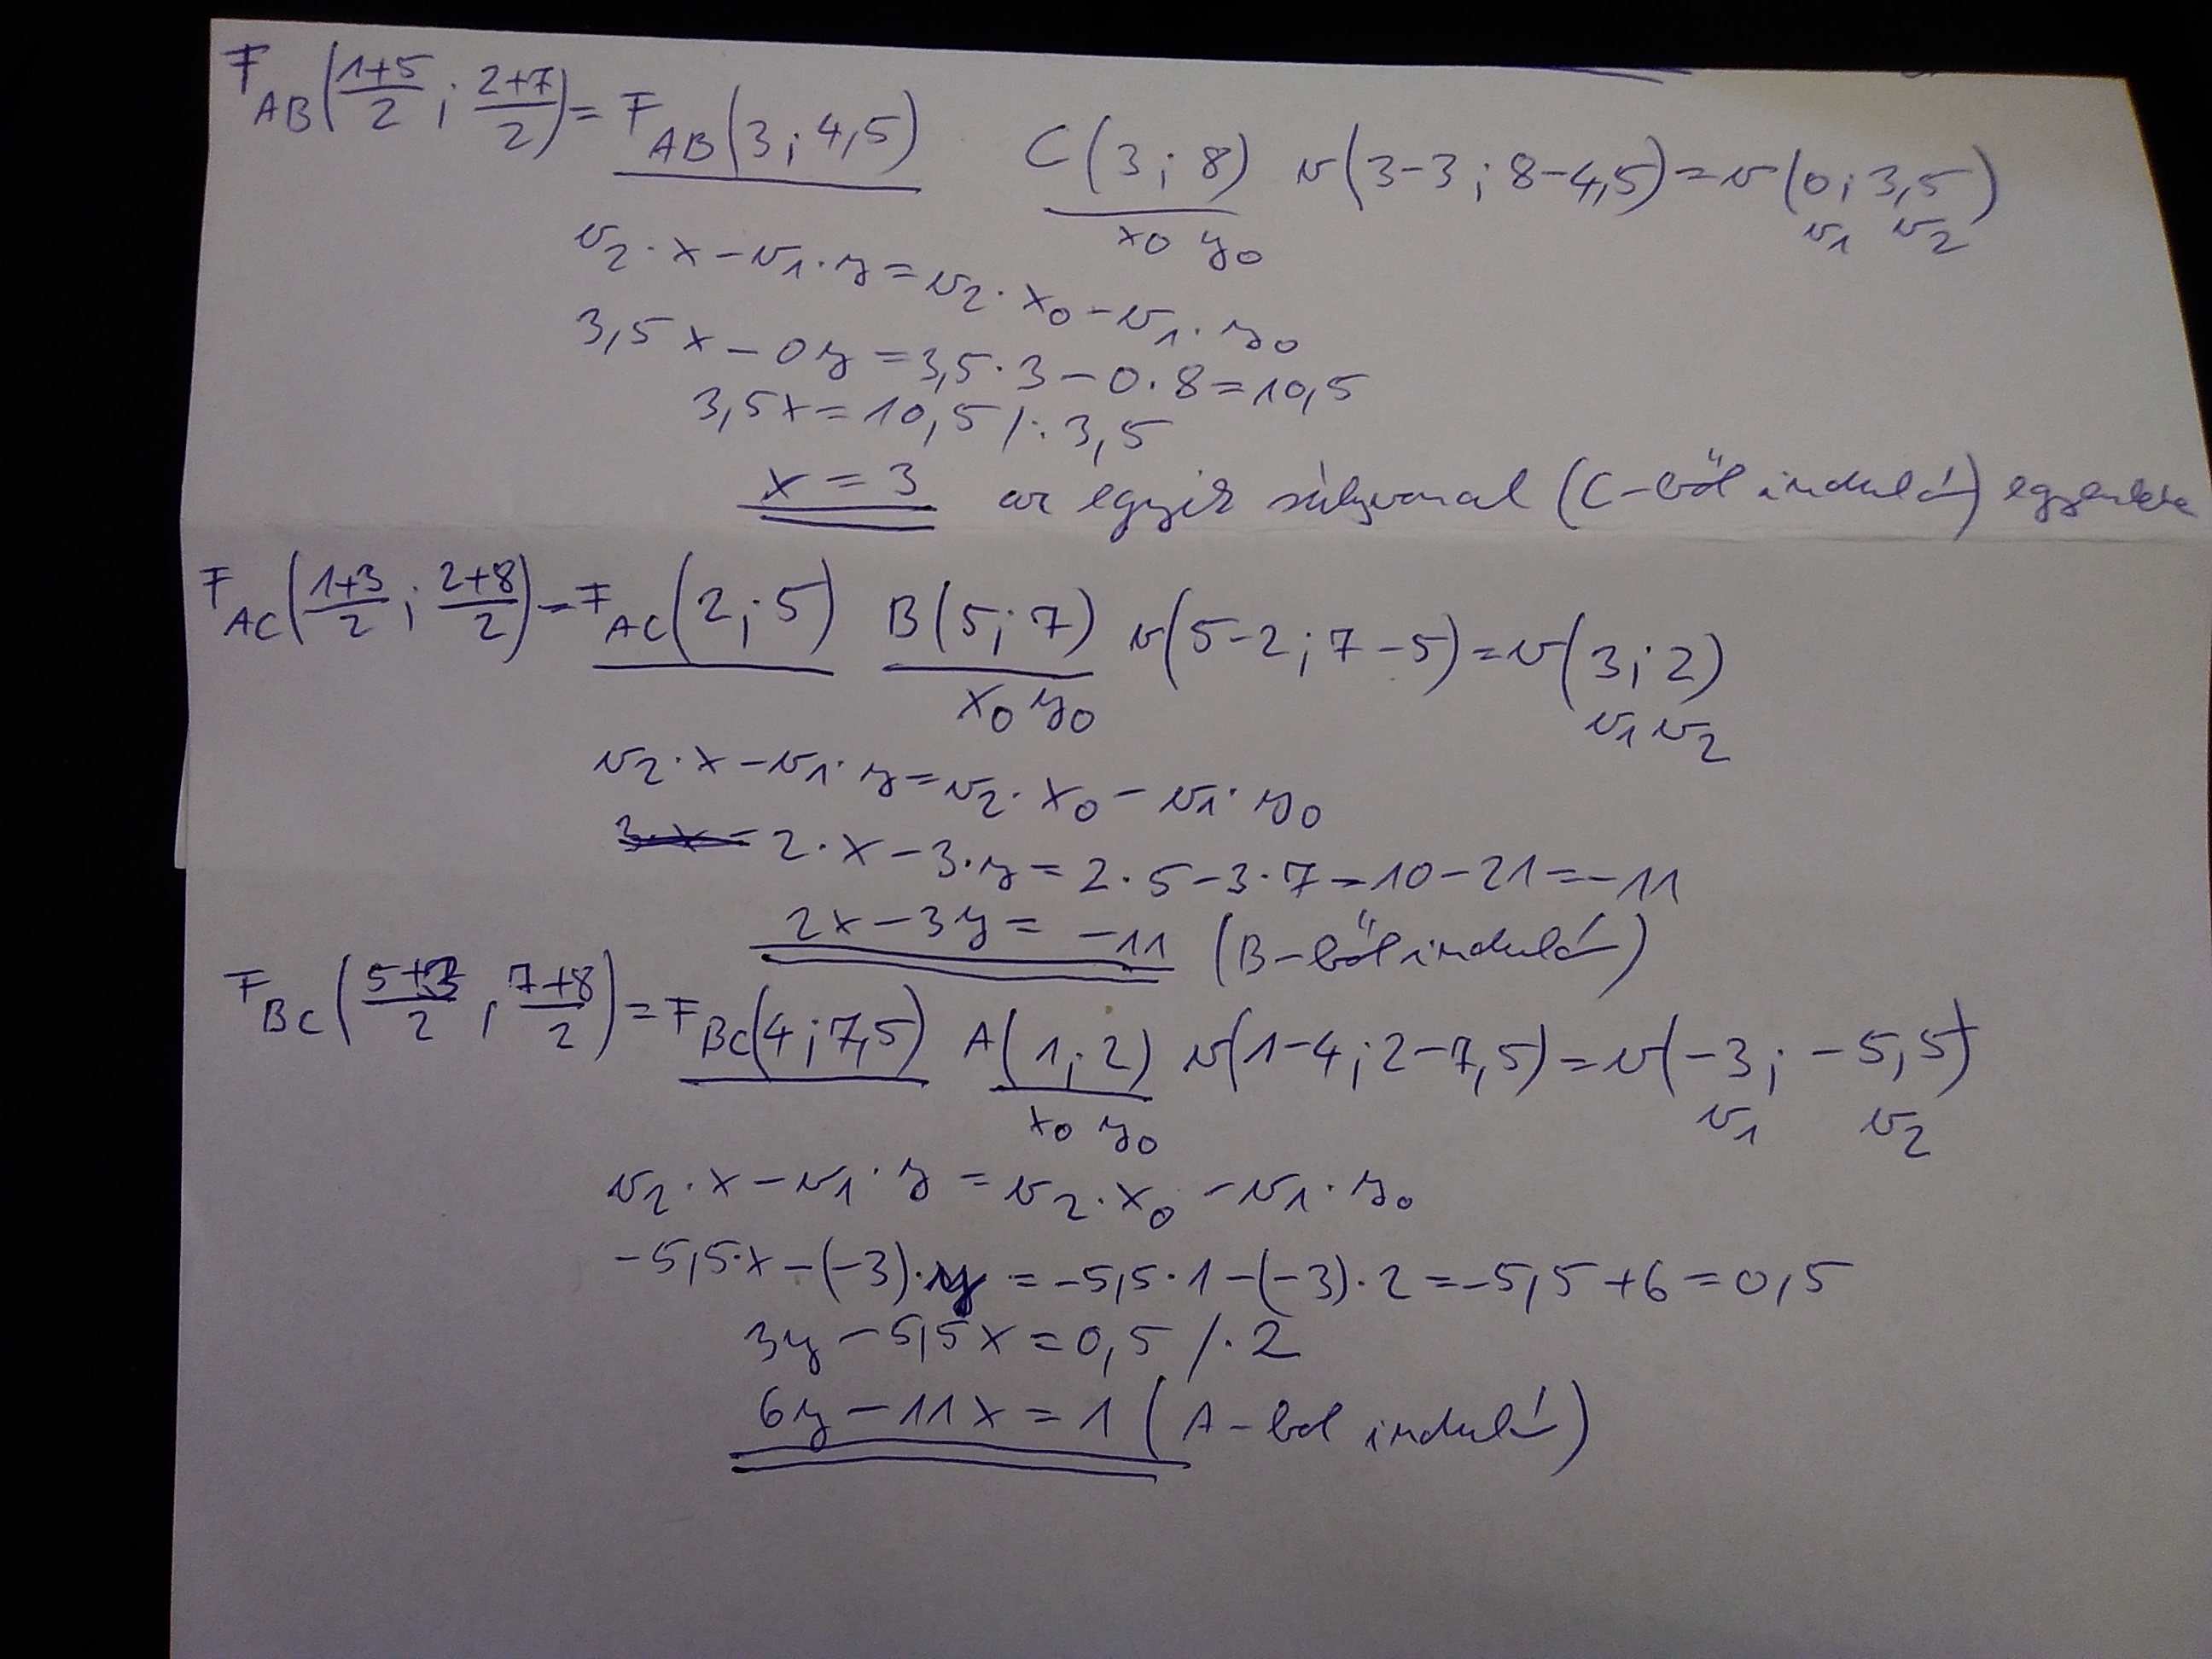 F_AB((1+5)/2 ; (2+7)/2) = F_AB(3 ; 4,5)   C(3 ; 8)   v(3-3 ; 8-4,5) = v(0 ; 3,5)
x0 y0   v1 v2
v2·x - v1·y = v2·x0 - v1·y0
3,5x - 0y = 3,5·3 - 0·8 = 10,5
3,5x = 10,5 /: 3,5
x = 3   az egyik súlyvonal (C-ből induló) egyenlete
F_AC((1+3)/2 ; (2+8)/2) = F_AC(2 ; 5)   B(5 ; 7)   v(5-2 ; 7-5) = v(3 ; 2)
x0 y0   v1 v2
v2·x - v1·y = v2·x0 - v1·y0
2·x - 3·y = 2·5 - 3·7 = 10 - 21 = -11
2x - 3y = -11 (B-ből induló)
F_BC((5+3)/2 ; (7+8)/2) = F_BC(4 ; 7,5)   A(1 ; 2)   v(1-4 ; 2-7,5) = v(-3 ; -5,5)
x0 y0   v1 v2
v2·x - v1·y = v2·x0 - v1·y0
-5,5·x - (-3)·y = -5,5·1 - (-3)·2 = -5,5 + 6 = 0,5
3y - 5,5x = 0,5 /·2
6y - 11x = 1 (A-ból induló)